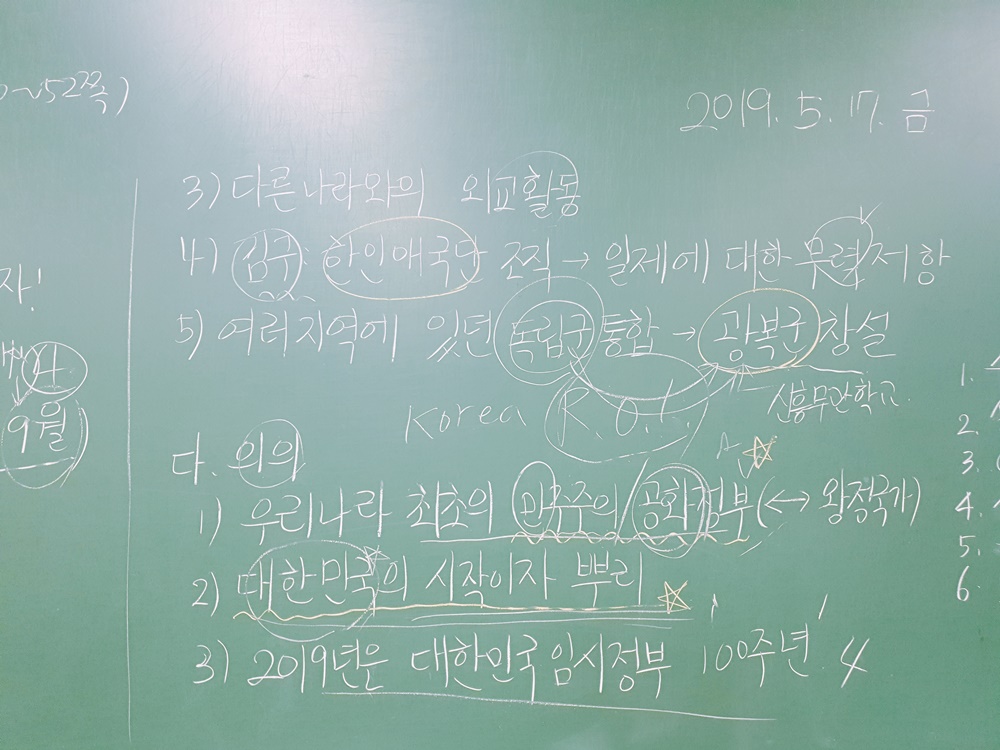 ~52쪽)
2019. 5. 17. 금
3) 다른나라와의 외교활동
4) 김구: 한인애국단 조직 → 일제에 대한 무력저항
자!
5) 여러지역에 있던 독립군 통합 → 광복군 창설
신흥무관학교
Korea R.O.
9월)
다. 의의
1) 우리나라 최초의 민주주의/공화정부(↔ 왕정국가)
2) 대한민국의 시작이자 뿌리
3) 2019년은 대한민국임시정부 100주년! 4
1.
2.
3.
4.
5.
6.